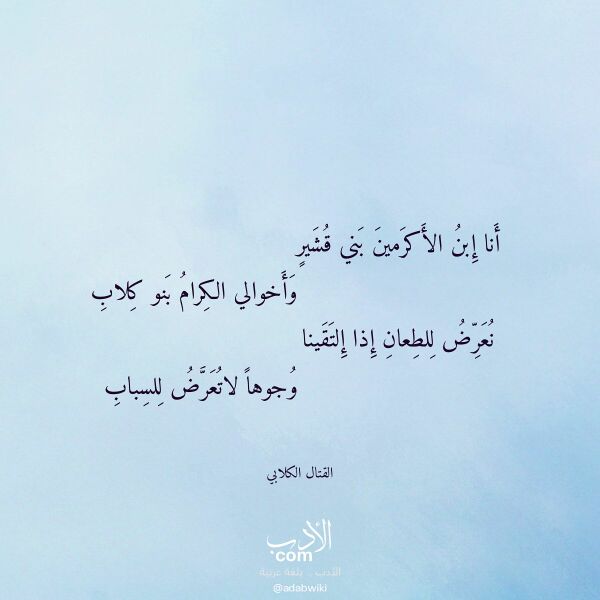 أَنا إِبنُ الأَكرَمينَ بَني قُشَيرٍ
وَأَخوالي الكِرامُ بَنو كِلابِ
نُعَرِّضُ لِلطِعانِ إِذا إِلتَقَينا
وُجوهاً لاتُعَرَّضُ لِلسِبابِ
القتال الكلابي
الأدب
com
الأدب .. بلغة عربية
@adabwiki